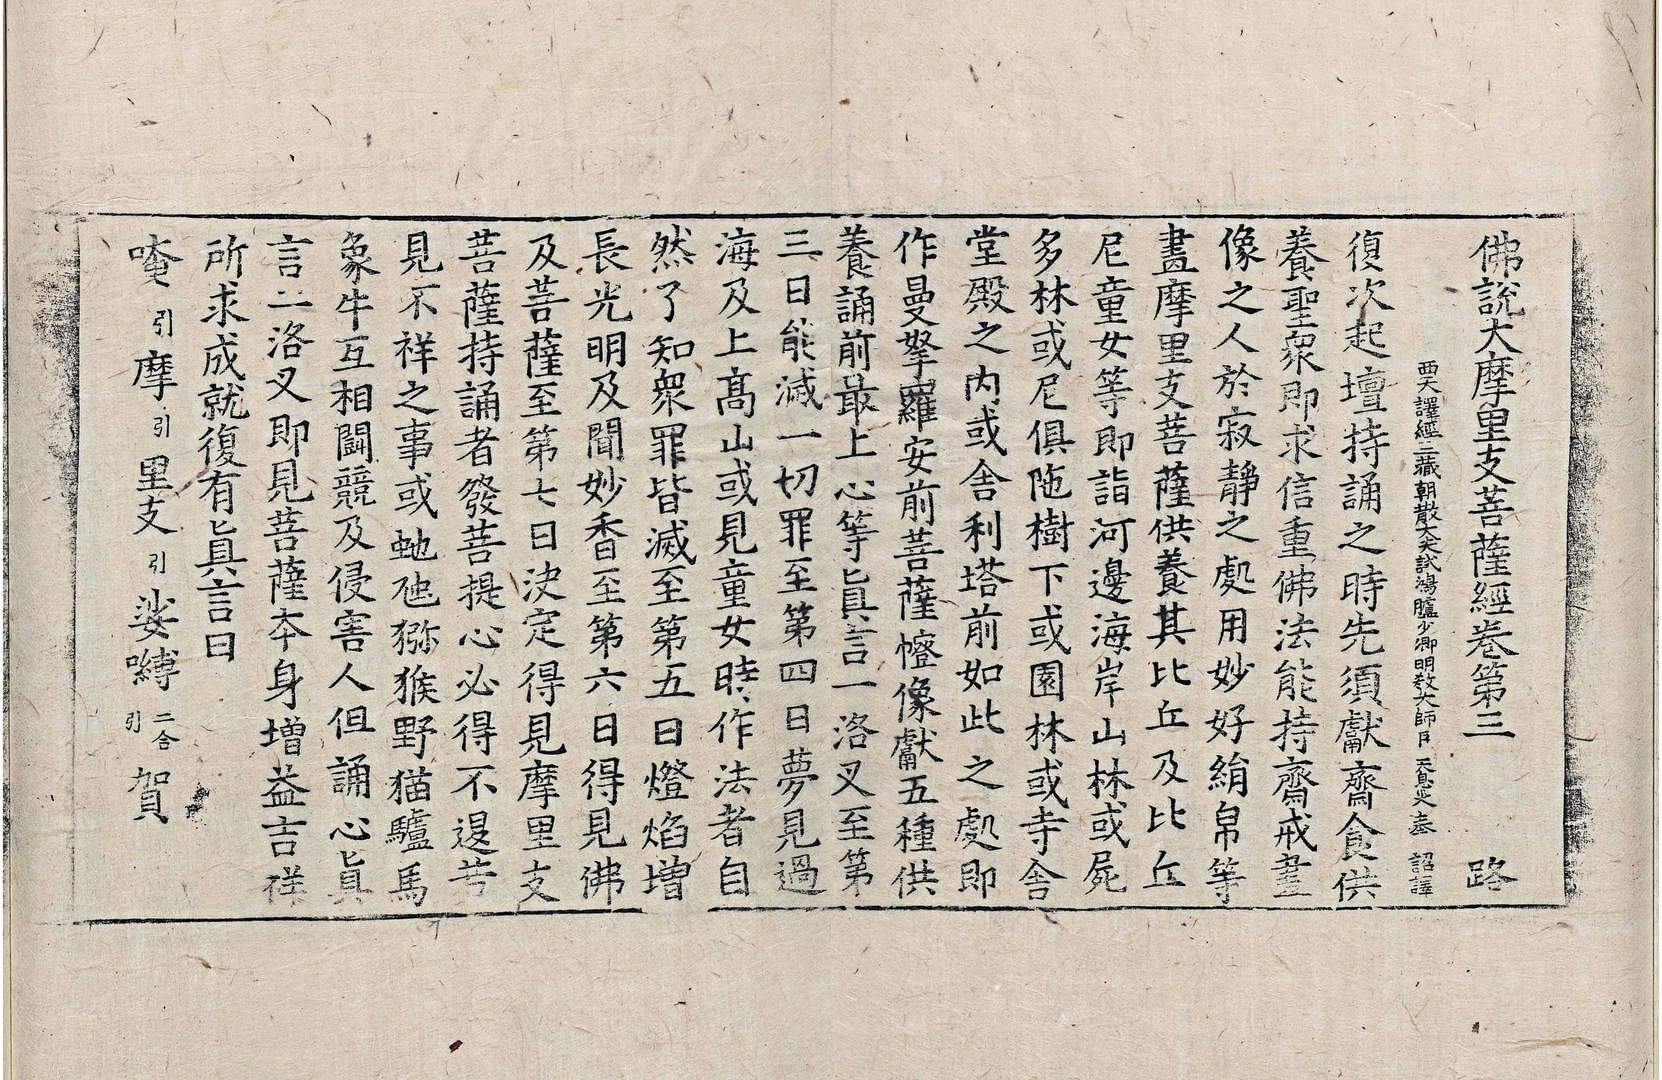 佛說大摩里支菩薩經卷第三 路
西天譯經三藏朝散大夫試鴻臚少卿明教大師臣天息災奉 詔譯
復次起壇持誦之時先須獻齋食供
養聖衆即求信重佛法能持齋戒畫
像之人於寂靜之處用妙好絹帛等
畫摩里支菩薩供養其比丘及比丘
尼童女等即詣河邊海岸山林或屍
多林或尼俱陁樹下或園林或寺舎
堂殿之內或舎利塔前如此之處即
作曼拏羅安前菩薩㡧像獻五種供
養誦前最上心等眞言一洛叉至第
三日能滅一切罪至第四日夢見過
海及上髙山或見童女時作法者自
然了知衆罪皆滅至第五日燈焰增
長光明及聞妙香至第六日得見佛
及菩薩至第七日決定得見摩里支
菩薩持誦者發菩提心必得不退若
見不祥之事或虵虺獼猴野猫驢馬
象牛互相鬪競及侵害人但誦心眞
言二洛叉即見菩薩夲身增益吉祥
所求成就復有眞言曰
唵引摩引里支引娑嚩二合引賀